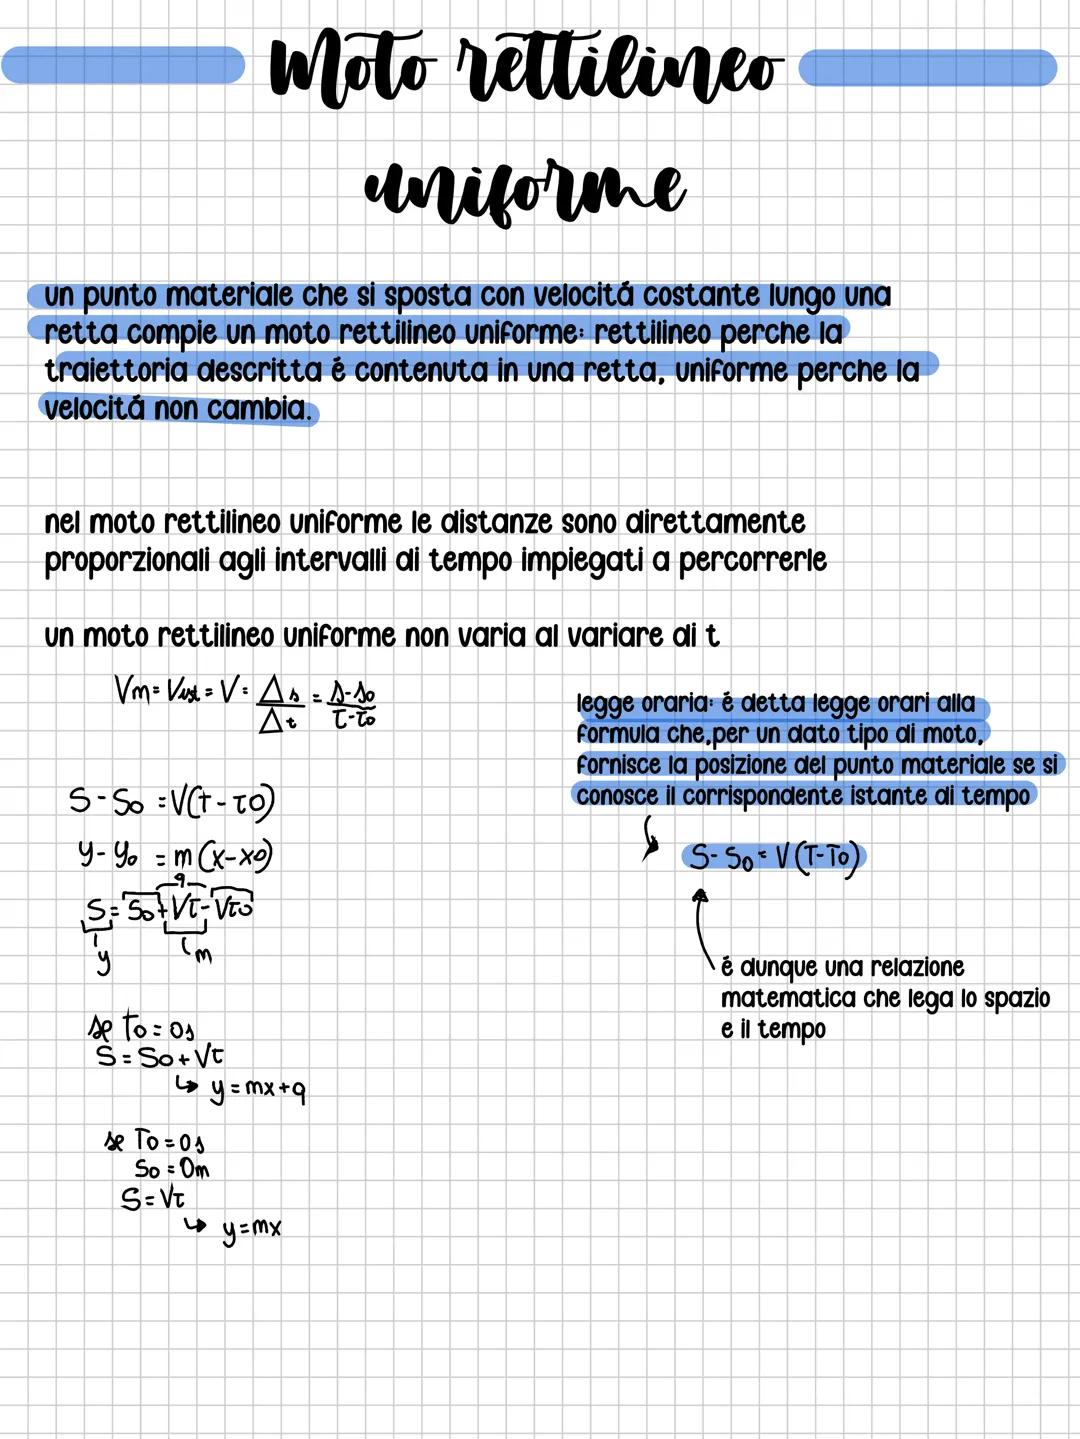 Moto rettilineo
uniforme
un punto materiale che si sposta con velocitá costante lungo una
retta compie un moto rettilineo uniforme: rettilineo perche la
traiettoria descritta é contenuta in una retta, uniforme perche la
velocitá non cambia.
nel moto rettilineo uniforme le distanze sono direttamente
proporzionali agli intervalli di tempo impiegati a percorrerle
un moto rettilineo uniforme non varia al variare di t
Vm = Vist = V = Δs/Δt = s-so/t-to
S-So = V(t-to)
y-yo = m(x-xo)
q
S = So+Vt-Vto
y m
se to = 0s
S = So + Vt
↳ y = mx+q
se To = 0s
So = 0m
S = Vt
↳ y = mx
legge oraria: é detta legge orari alla
formula che,per un dato tipo di moto,
fornisce la posizione del punto materiale se si
conosce il corrispondente istante di tempo
S-So = V(T-To)
é dunque una relazione
matematica che lega lo spazio
e il tempo